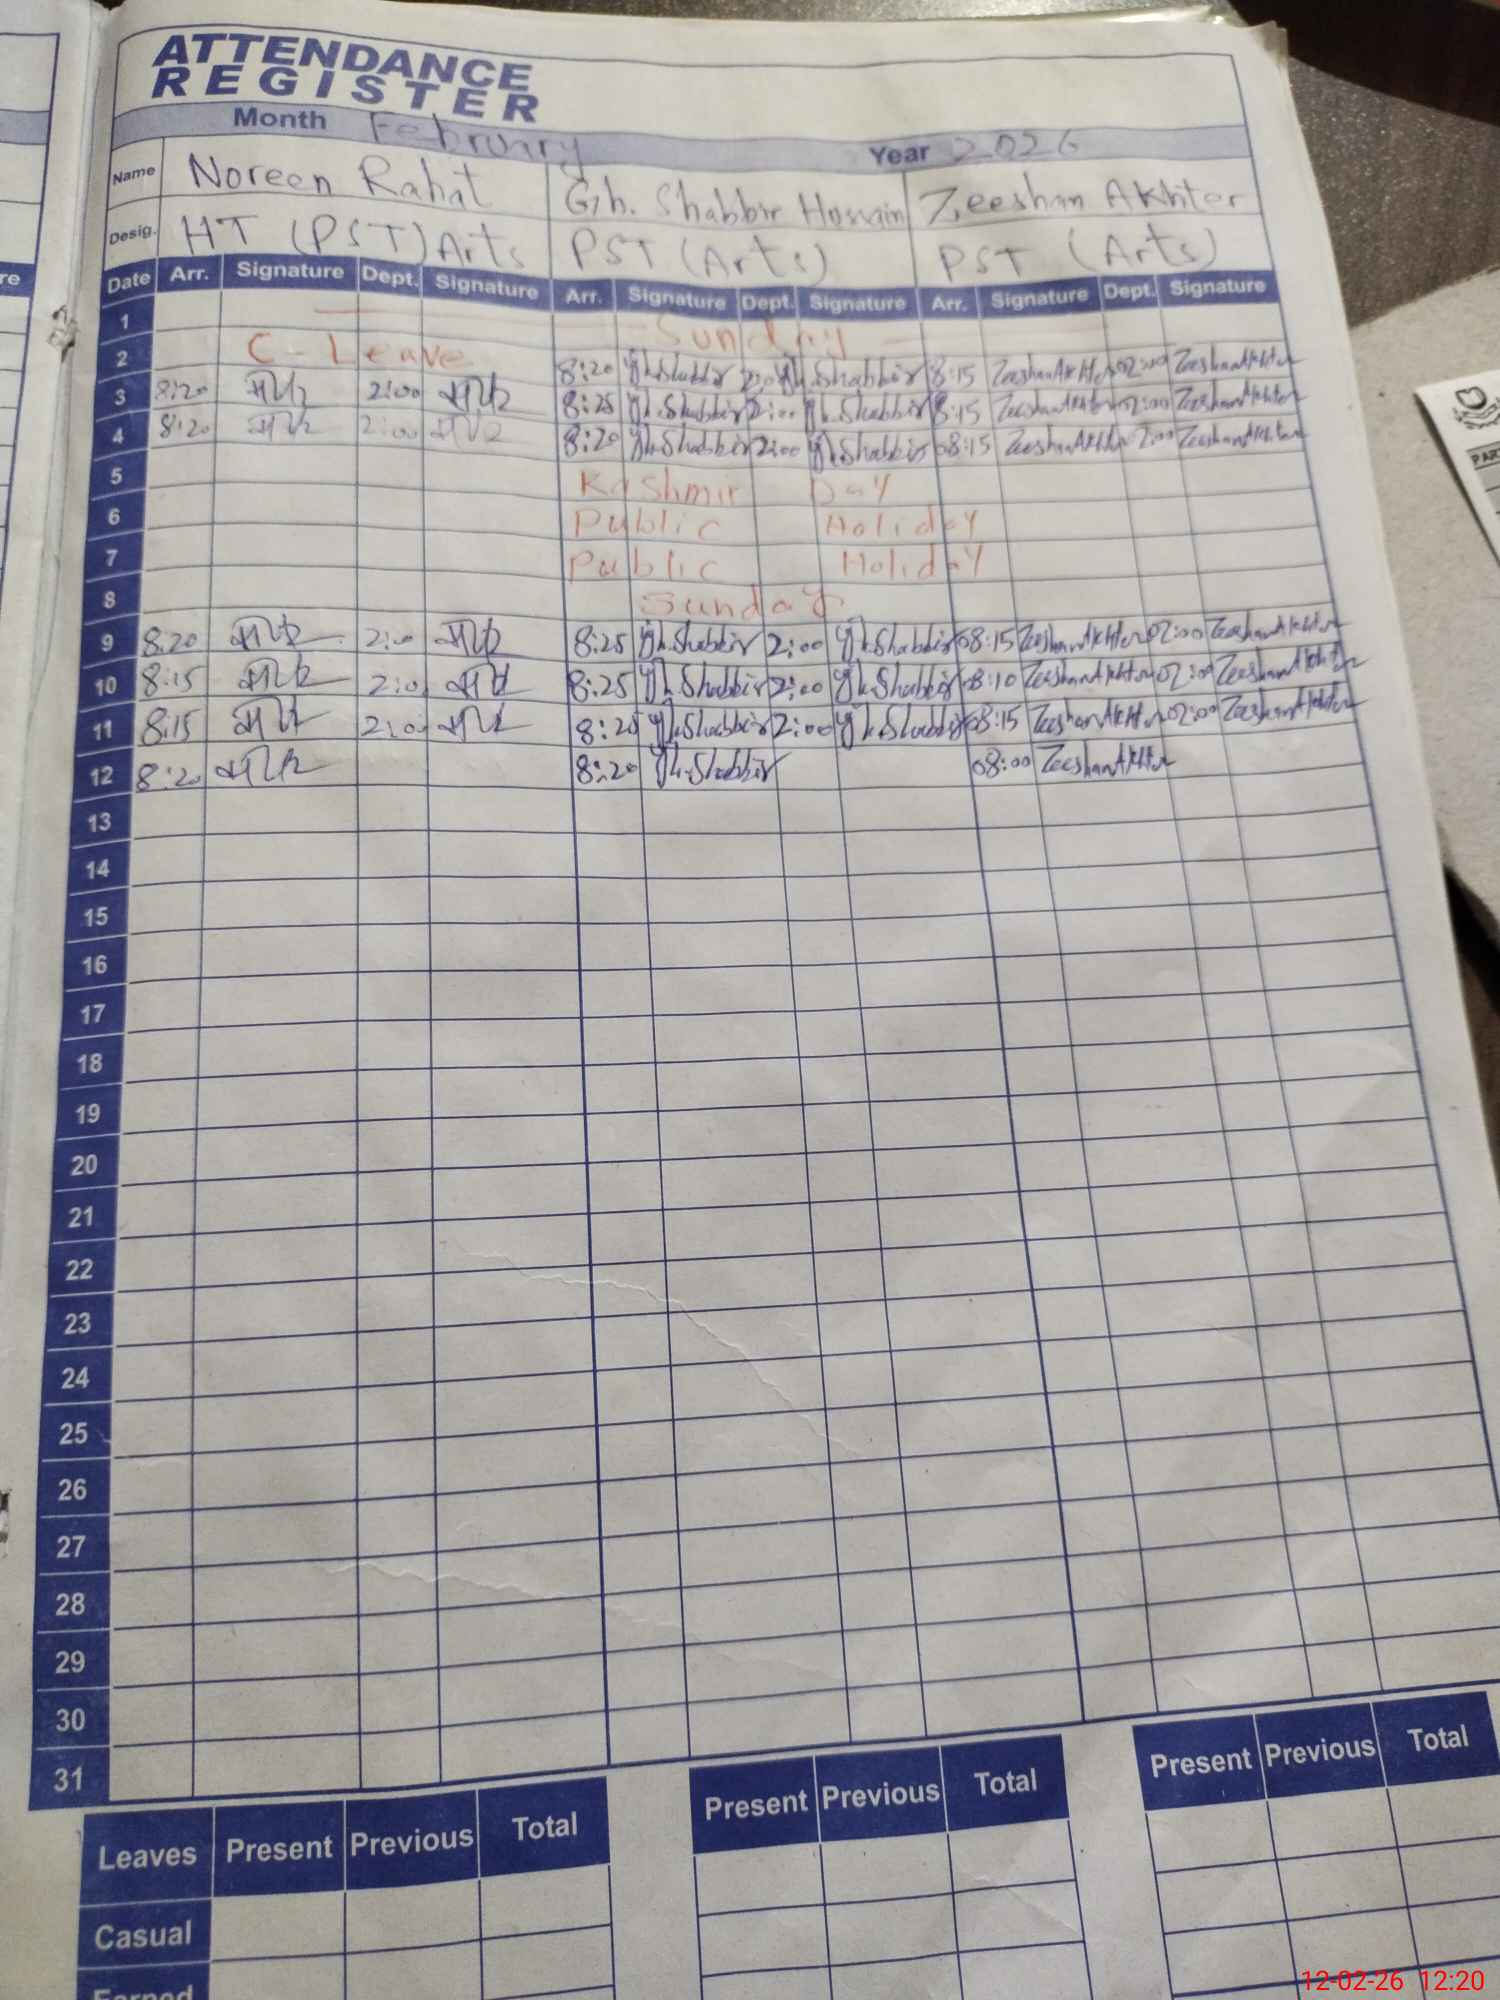 ATTENDANCE
REGISTER
Month February Year 2026
Name Noreen Rahat Gh. Shabbir Hossain Zeeshan Akhter
Desig. HT (PST) Arts PST (Arts) PST (Arts)
Date Arr. Signature Dept. Signature Arr. Signature Dept. Signature Arr. Signature Dept. Signature
1 Sunday
2 C-Leave 8:20 Gh.Shabbir Gh.Shabbir 8:15 ZeeshanAkhter 02:00 ZeeshanAkhter
3 8:20 2:00 8:25 Gh.Shabbir 2:00 Gh.Shabbir 8:15 ZeeshanAkhter 02:00 ZeeshanAkhter
4 8:20 2:00 8:20 Gh.Shabbir 2:00 Gh.Shabbir 08:15 ZeeshanAkhter 2:00 ZeeshanAkhter
5 Kashmir Day
6 Public Holiday
7 Public Holiday
8 Sunday
9 8:20 2:00 8:25 Gh.Shabbir 2:00 Gh.Shabbir 08:15 ZeeshanAkhter 02:00 ZeeshanAkhter
10 8:15 2:0 8:25 Gh.Shabbir 2:00 Gh.Shabbir 08:10 ZeeshanAkhter 02:00 ZeeshanAkhter
11 8:15 2:00 8:25 Gh.Shabbir 2:00 Gh.Shabbir 08:15 ZeeshanAkhter 02:00 ZeeshanAkhter
12 8:20 8:20 Gh.Shabbir 08:00 ZeeshanAkhter
13
14
15
16
17
18
19
20
21
22
23
24
25
26
27
28
29
30
31
Leaves Present Previous Total Present Previous Total Present Previous Total
Casual
Earned
12-02-26 12:20